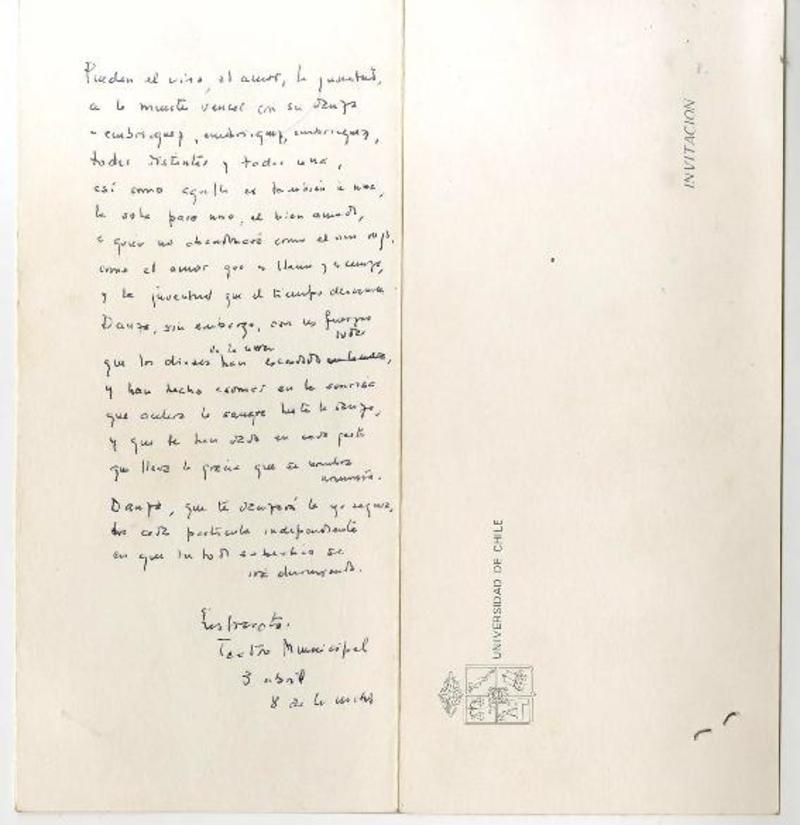 Pueden el vino, el amor, la juventud,
a la muerte vencer con su danza
embriaguez, embriaguez, embriaguez,
todas distintas y todas una,
así como aquella es también a una,
la sola para uno, el bien amado,
a quien no abandonará como el vino
como el amor que es llama y
y la juventud que el tiempo
Danza, sin embargo, con las fuerzas
todas
que los dioses han
de la
y han hecho asomar en la sonrisa
que acelera la sangre hasta la danza,
y que te han dado en cada gesto
que lleva la gracia que se nombra
armonía.
Danza, que te danzará la ya segura,
cada partícula independiente
en que tu todo soberbio se
irá
Teatro Municipal
3 abril
8 de la noche
INVITACION
UNIVERSIDAD DE CHILE